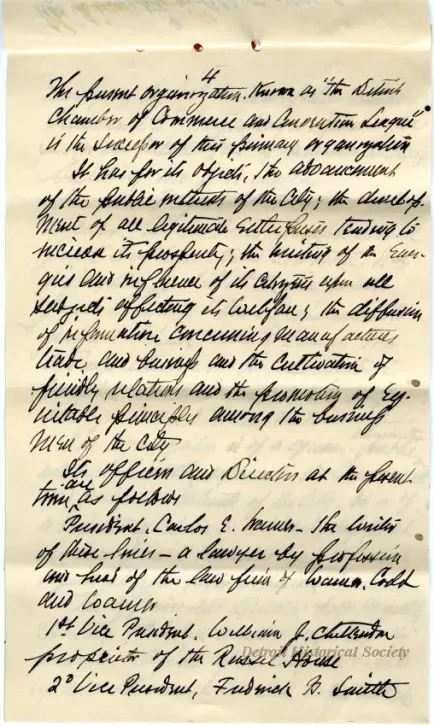 4
The present organization. Known as "the Detroit
Chamber of Commerce and Convention League"
is the successor of this primary organization
It has for its objects, the advancement
of the public interests of the City; the develop
ment of all legitimate Enterprises tending to
increase its prosperity; the uniting of the Ener-
gies and influence of its citizens upon all
subjects affecting its welfare; the diffusion
of information concerning manufactures
trade and business and the cultivation of
friendly relations and the promotion of Eq-
uitable principles among the business
men of the city
Its officers and Directors at the present
time are as follows
President. Carlos E. Warner - the writer
of these lines - a lawyer by profession
and head of the law firm of Warner, Codd
and Warner
1st Vice President. William J. Chittenden
proprietor of the Russel House
Detroit Historical Society
2d Vice President, Fredrick B. Smith